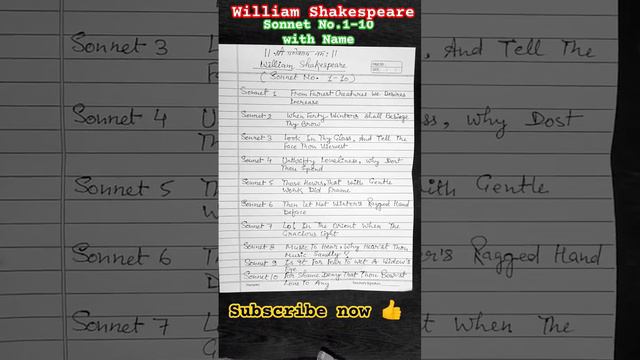 William Shakespeare
Sonnet No.1-10
with Name
|| श्री गणेशाय नमः ||
William Shakespeare
( Sonnet No. 1-10)
Sonnet 1 From Fairest Creatures We Desires
Increase
Sonnet 2 When Forty Winters Shall Besiege
Thy Brow
Sonnet 3 Look In Thy Glass, And Tell The
Face Thou Viewest
Sonnet 4 Unthrifty Loveliness, Why Dost
Thou Spend
Sonnet 5 Those Hours, That With Gentle
Work Did Frame
Sonnet 6 Then Let Not Winter's Ragged Hand
Deface
Sonnet 7 Lo! In The Orient When The
Gracious Light
Sonnet 8 Music To Hear, Why Hear'st Thou
Music Sadly?
Sonnet 9 Is It For Fear To Wet A Widow's
Eye
Sonnet 10 For Shame Deny That Thou Bear'st
Love To Any
Subscribe now 👍
Sonnet 3
And Tell The
Sonnet 4
ss, Why Dost
Sonnet 5
with Gentle
Sonnet 6
er's Ragged Hand
Sonnet 7
t When The